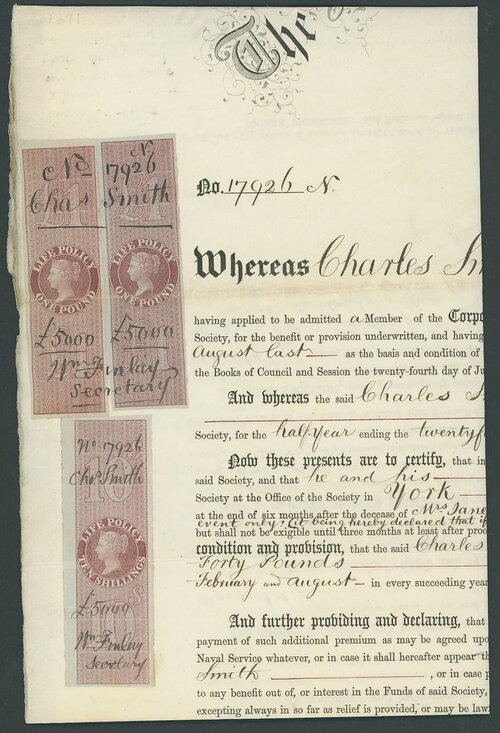 The
No. 17926 N.
No 17926 N.
Chas Smith
LIFE POLICY
ONE POUND
LIFE POLICY
ONE POUND
£5000 £5000
Wm Finlay
Secretary
No 17926
Chas Smith
10
LIFE POLICY
TEN SHILLINGS
£5000
Wm Finlay
Secretary
Whereas Charles
having applied to be admitted a Member of the
Society, for the benefit or provision underwritten, and having
August last as the basis and condition of
the Books of Council and Session the twenty-fourth day of
And whereas the said Charles
Society, for the half-year ending the
Now these presents are to certify, that in
said Society, and that he and his
Society at the Office of the Society in York
at the end of six months after the decease of Mrs Jane
event only, (it being hereby declared that if
but shall not be exigible until three months at least after
condition and provision, that the said Charles
Forty Pounds
February and August in every succeeding year
And further providing and declaring, that
payment of such additional premium as may be agreed upon
Naval Service whatever, or in case it shall hereafter appear
Smith , or in case
to any benefit out of, or interest in the Funds of said Society,
excepting always in so far as relief is provided, or may be